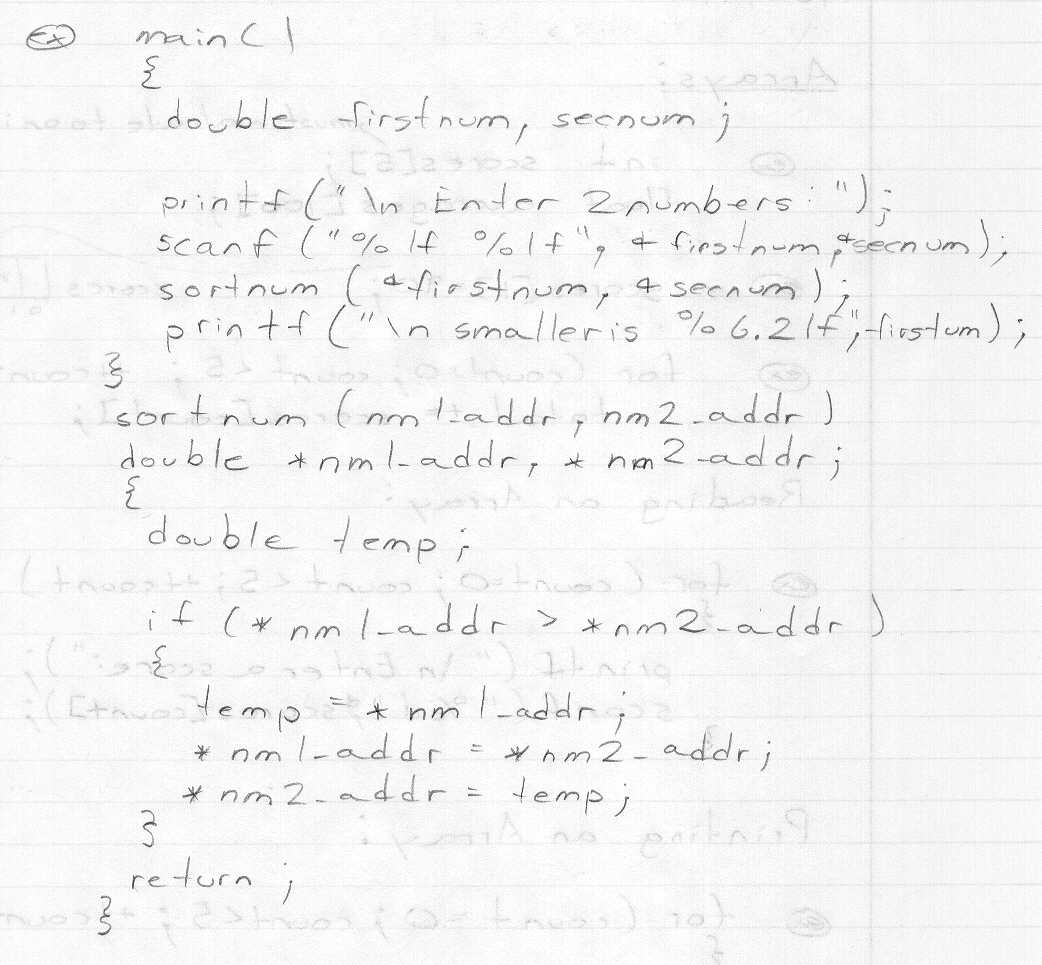 Ex main()
{
double firstnum, secnum;
printf("\n Enter 2 numbers: ");
scanf ("%lf %lf", &firstnum, &secnum);
sortnum (&firstnum, &secnum);
printf ("\n smaller is %6.2lf", firstum);
}
sortnum (nm1_addr, nm2_addr)
double *nm1_addr, *nm2_addr;
{
double temp;
if (*nm1_addr > *nm2_addr)
{
temp = *nm1_addr;
*nm1_addr = *nm2_addr;
*nm2_addr = temp;
}
return;
}